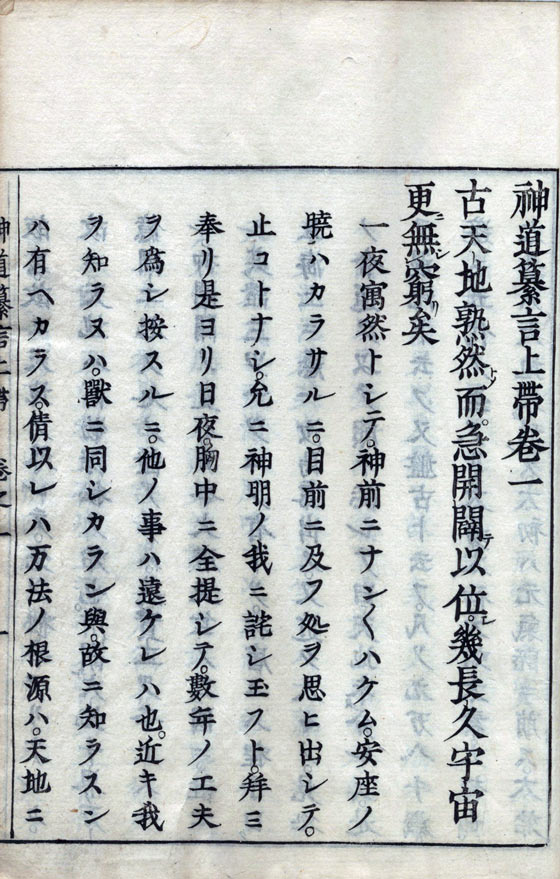 神道纂言上帯巻一
古天地熟然トシテ而。急開闢テ以位シ。幾長久宇宙
更ニ無シ窮リ矣
一夜寓然トシテ。神前ニナン〱ハケム。安座ノ
暁ハカラサルニ。目前ニ及フ処ヲ思ヒ出シテ。
止コトナシ。允ニ神明ノ我ニ詫シ玉フト。拜ミ
奉リ是ヨリ日夜。胸中ニ全提シテ。數年ノ工夫
ヲ為シ按スルニ。他ノ事ハ遠ケレハ也。近キ我
ヲ知ラヌハ。獸ニ同シカラン與。故ニ知ラスン
ハ有ヘカラス。倩以レハ万法ノ根源ハ。天地ニ
神道纂言上帯 巻之一 一